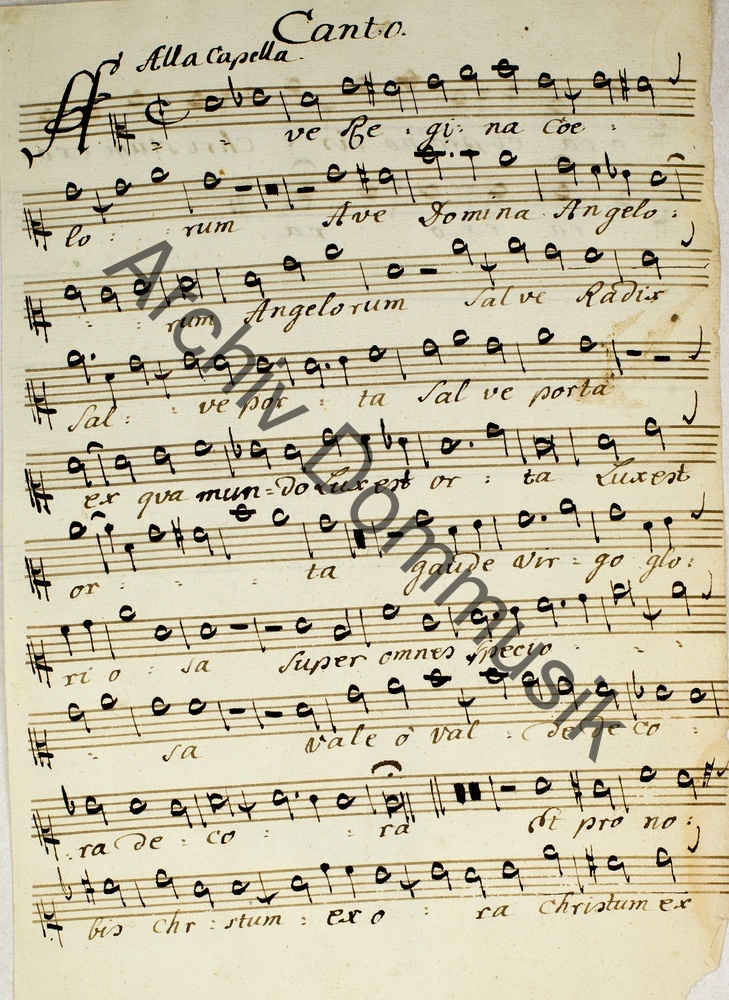 Canto.
Alla Capella
A ve Re gi na Coe
lo rum Ave Domina Angelo
rum Angelorum Salve Radix
Sal ve por ta Salve porta
ex qua mundo Lux est or ta Lux est
or ta gaude Vir go glo
ri o sa Super omnes specio
sa vale o val de de co
ra de co ra Et pro no
bis Chr istum exo ra Christum ex
Archiv Dommusik